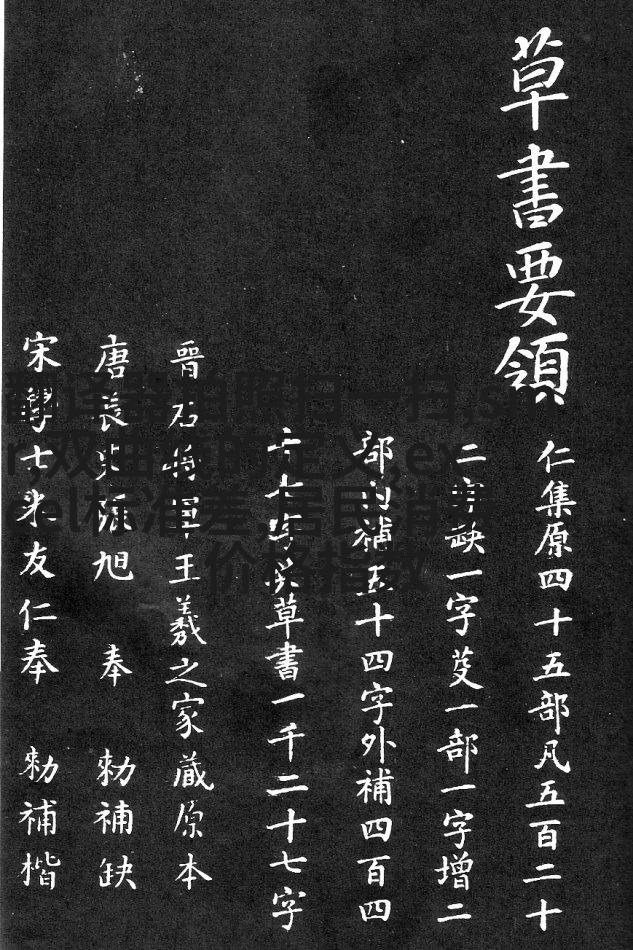 草書要領
仁集原四十五部凡五百二十
二字缺一字芟一部一字增二
部内補五十四字外補四百四
十七字草書一千二十七字
晉右將軍王羲之家藏原本
唐長史張旭 奉 勑補缺
宋學士米友仁奉 勑補楷
翻译器拍照扫一扫,
r,双曲线的定义,ex
cel标准差,居民消费
价格指数